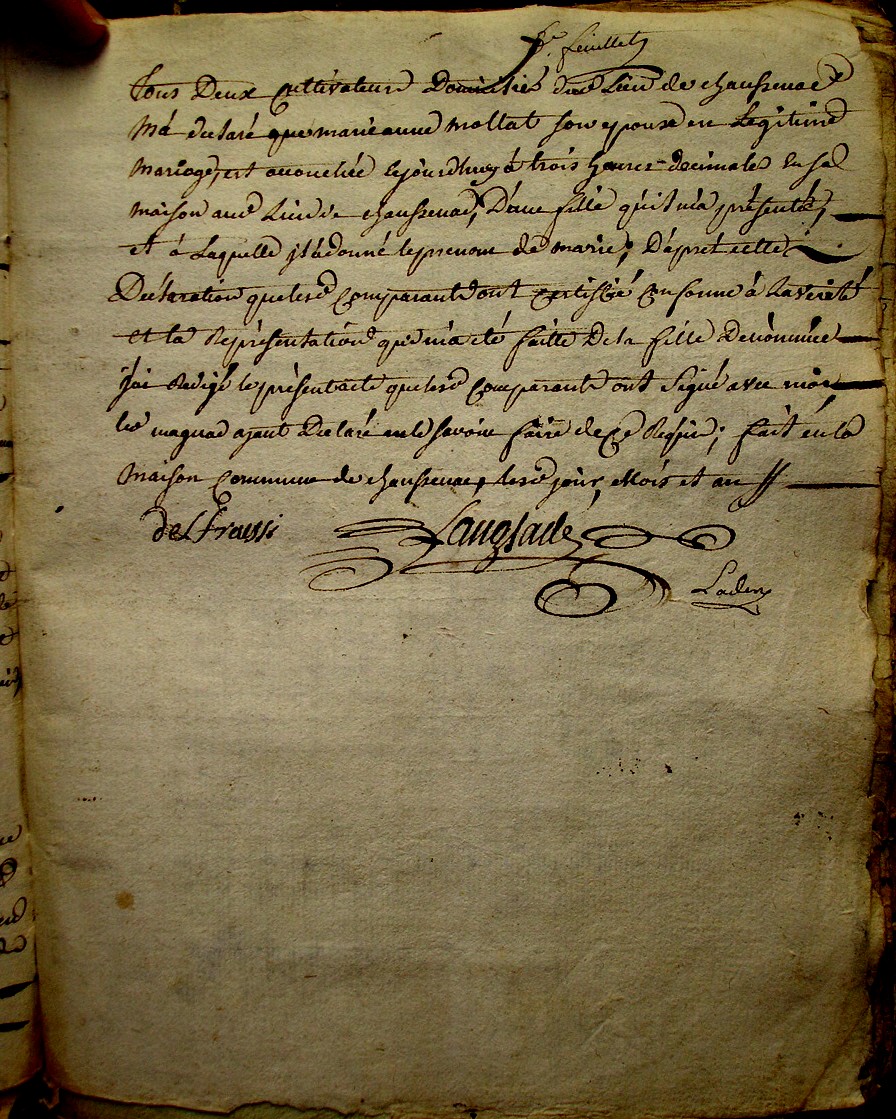 feuillet
Tous Deux Cultivateurs Domiciliés dud. Lieu de chaussenac
M'a declaré que marie anne mollat son epouse en Legitime
mariage, est accouchée cejourdhuy à trois heures decimales En sa
maison aud. Lieu de chaussenac, D'une fille qu'il m'a présenté,
et à Laquelle jl a donné le prenom de marie; D'apret cette
Déclaration que lesd. Comparants ont certifié Conforme à La vérité
et la Représentation qui m'a été faitte De la fille Denommée
J'ai Redigé le présent acte que lesd. Comparants ont Signé avec moi,
led. magnac ayant Declaré ne le savoir faire de ce Requis; fait en la
Maison Commune de chaussenac, lesd. jour, Mois et an
Langlade